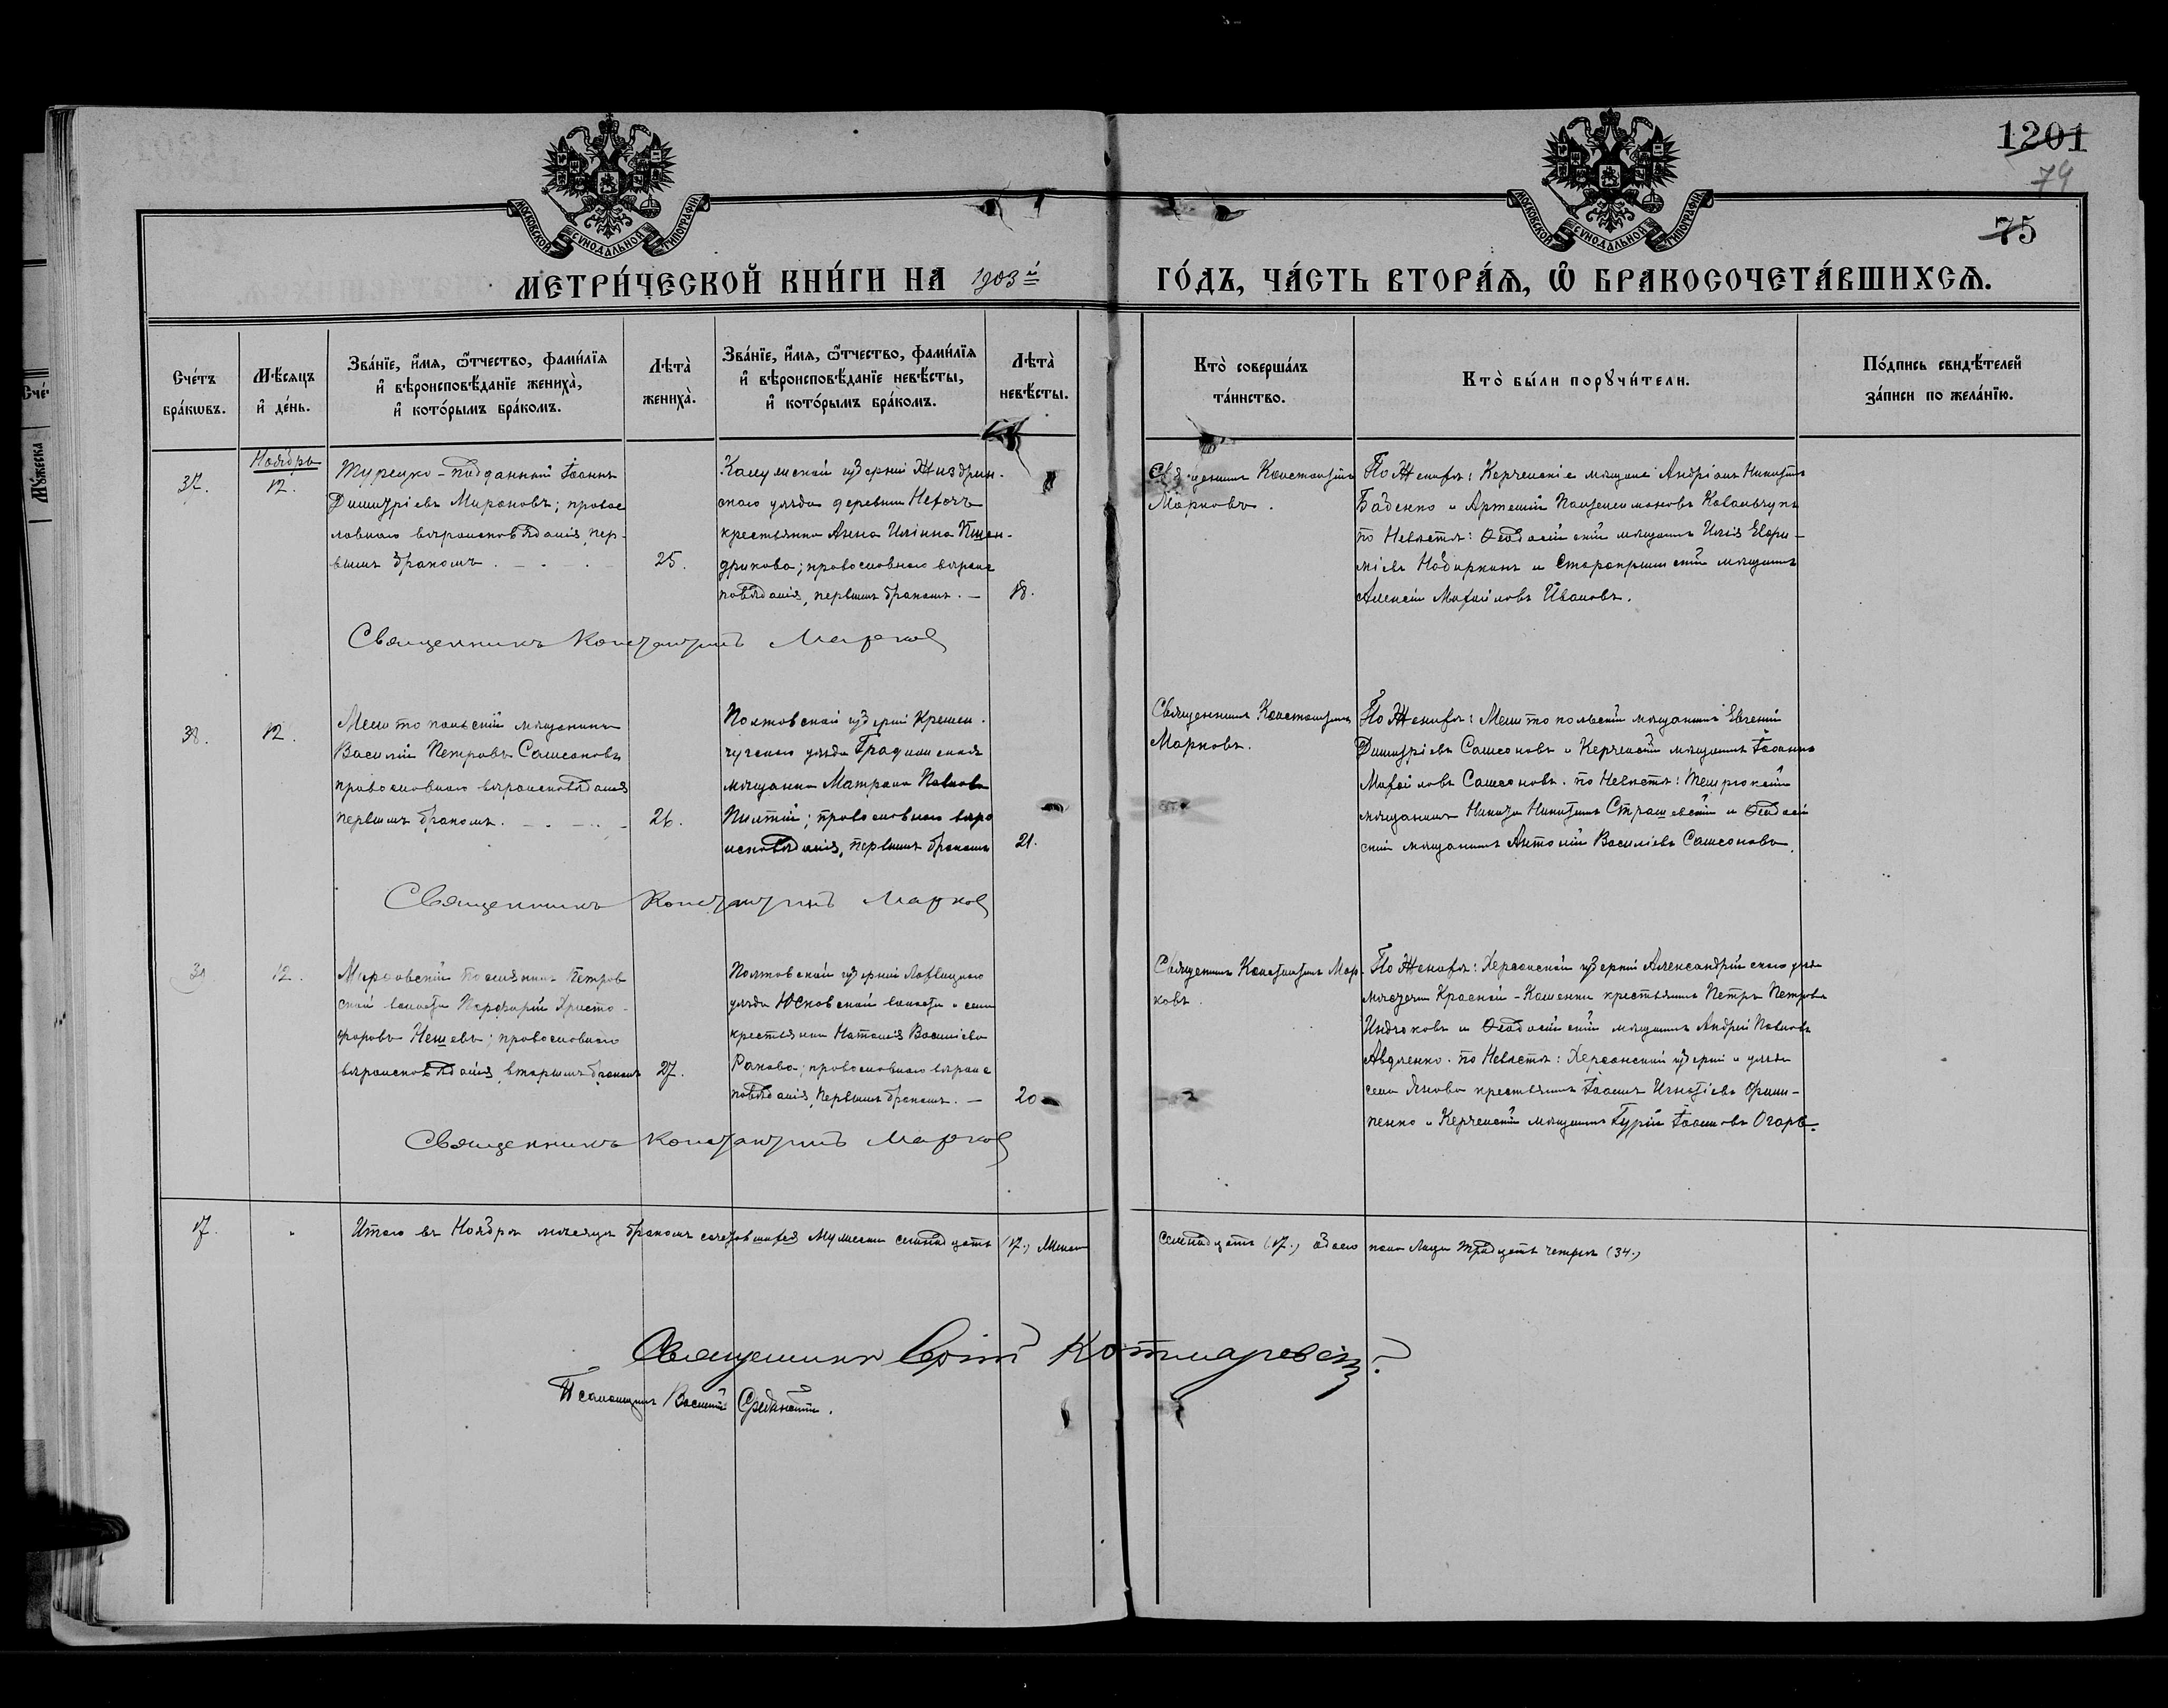 1201
74
75
МОСКОВСКОЙ СѴНОДАЛЬНОЙ ТИПОГРАФІИ
МОСКОВСКОЙ СѴНОДАЛЬНОЙ ТИПОГРАФІИ
МЕТРИ́ЧЕСКОЙ КНИ́ГИ НА 1903й ГО́ДЪ, ЧА́СТЬ ВТОРА́Ѧ, Ѡ҆ БРАКОСОЧЕТА́ВШИХСѦ.
Сче́тъ бра́кѡвъ.
Мѣ́сѧцъ и҆ де́нь.
Зва́нїе, и҆́мѧ, ѻ҆́тчество, фами́лїѧ
и҆ вѣроисповѣ́данїе жениха̀,
и҆ кото́рымъ бра́комъ.
Лѣта̀ жениха̀.
Зва́нїе, и҆́мѧ, ѻ҆́тчество, фами́лїѧ
и҆ вѣроисповѣ́данїе невѣ́сты,
и҆ кото́рымъ бра́комъ.
Лѣта̀ невѣ́сты.
Кто̀ соверша́лъ та́инство.
Кто̀ бы́ли порꙋчи́тели.
По́дпись свидѣ́телей за́писи по жела́нїю.
37.
Ноябрь
12.
Турецко-подданный Іоаннъ
Димитріевъ Мироновъ; правос
лавнаго вѣроисповѣданія, пер-
вымъ бракомъ.
25.
Калужской губерніи Жиздрин-
скаго уѣзда деревни
крестьянка Анна Иліина
дрикова; православнаго вѣроис
повѣданія, первымъ бракомъ.
18.
Священникъ Константинъ
Марковъ.
По Женихѣ: Керченскіе мѣщане Андріанъ Никитинъ
Баденко и Артемій Пантелимоновъ Ковальчукъ
по Невѣстѣ: Ѳеодосійскій мѣщанинъ Илія Евфи-
міевъ и Старокрымскій мѣщанинъ
Алексій Михайловъ Ивановъ.
Священникъ Константинъ Марковъ
38.
12.
Мелитопольскій мѣщанинъ
Василій Петровъ Самсоновъ
православнаго вѣроисповѣданія
первымъ бракомъ.
26.
Полтавской губерніи Кремен-
чугскаго уѣзда Градижская
мѣщанка Матрона Павлова
православнаго вѣро
исповѣданія, первымъ бракомъ
21.
Священникъ Константинъ
Марковъ.
По Женихѣ: Мелитопольскій мѣщанинъ Евгеній
Димитріевъ Самсоновъ и Керченскій мѣщанинъ Іоаннъ
Михайловъ Самсоновъ. По Невѣстѣ: Темрюкскій
мѣщанинъ Никита Никитинъ Страшевскій и Ѳеодосій
скій мѣщанинъ Антоній Василіевъ Самсоновъ.
Священникъ Константинъ Марковъ
39.
12.
Марфовскій поселянинъ Петров
ской волости Порфирій Христо-
форовъ Нешевъ; православнаго
вѣроисповѣданія, вторымъ бракомъ
27.
Полтавской губерніи Лохвицкаго
уѣзда Юсковской волости и села
крестьянка Наталія Василіева
Ракова; православнаго вѣроис
повѣданія, первымъ бракомъ.
20
Священникъ Константинъ Мар-
ковъ.
По Женихѣ: Херсонской губерніи Александрійскаго уѣзда
мѣстечка Красной-Каменки крестьянинъ Петръ Петровъ
и Ѳеодосійскій мѣщанинъ Андрей Павловъ
Авдѣенко. По Невѣстѣ: Херсонской губерніи и уѣзда
села Янова крестьянинъ Іоаннъ Игнатіевъ Фили-
пенко и Керченскій мѣщанинъ Гурій Іоанновъ
Священникъ Константинъ Марковъ
17.
Итого въ Ноябрѣ мѣсяцѣ бракомъ сочетавшихся Мужеска семнадцать (17.) Женска семнадцать (17.) обоего пола лицъ тридцать четыре (34.)
Священникъ
Псаломщикъ Василій